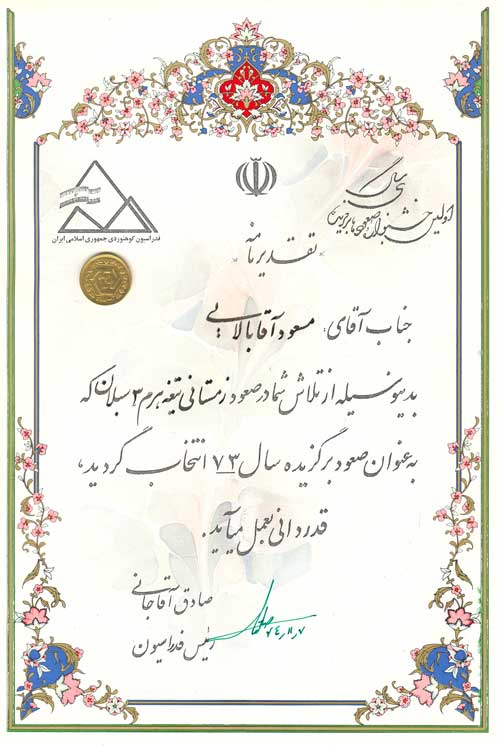 اولین جشنواره صعودهای برگزیده
سال
فدراسیون کوهنوردی جمهوری اسلامی ایران
تقدیرنامه
جناب آقای: مسعود آقابالایی
بدینوسیله از تلاش شما در صعود زمستانی تیغه هرم ۳ سبلان که
به عنوان صعود برگزیده سال ۷۳ انتخاب گردید،
قدردانی بعمل میآید.
صادق آقاجانی
رئیس فدراسیون
۷۴،۱۱،۷